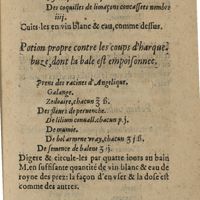 Des coquilles de limaçons concassees nombre
iiij.
Cuits-les en vin blanc & eau, comme dessus.
Potion propre contre les coups d'harque-
buze, dont la bale est empoisonnee.
Prens des racines d'Angelique.
Galange.
Zedoaire, chacun ℥ ß.
Des fleurs de peruenche.
De lilium conuall. chacun p. j.
De mumie.
De bol armene vray, chacun ʒ j ß.
De semence de balene ʒ ij.
Digere & circule-les par quatre iours au bain
M. en suffisante quantité de vin blanc & eau de
royne des prez: la façon d'en vser & la dose est
comme des autres.